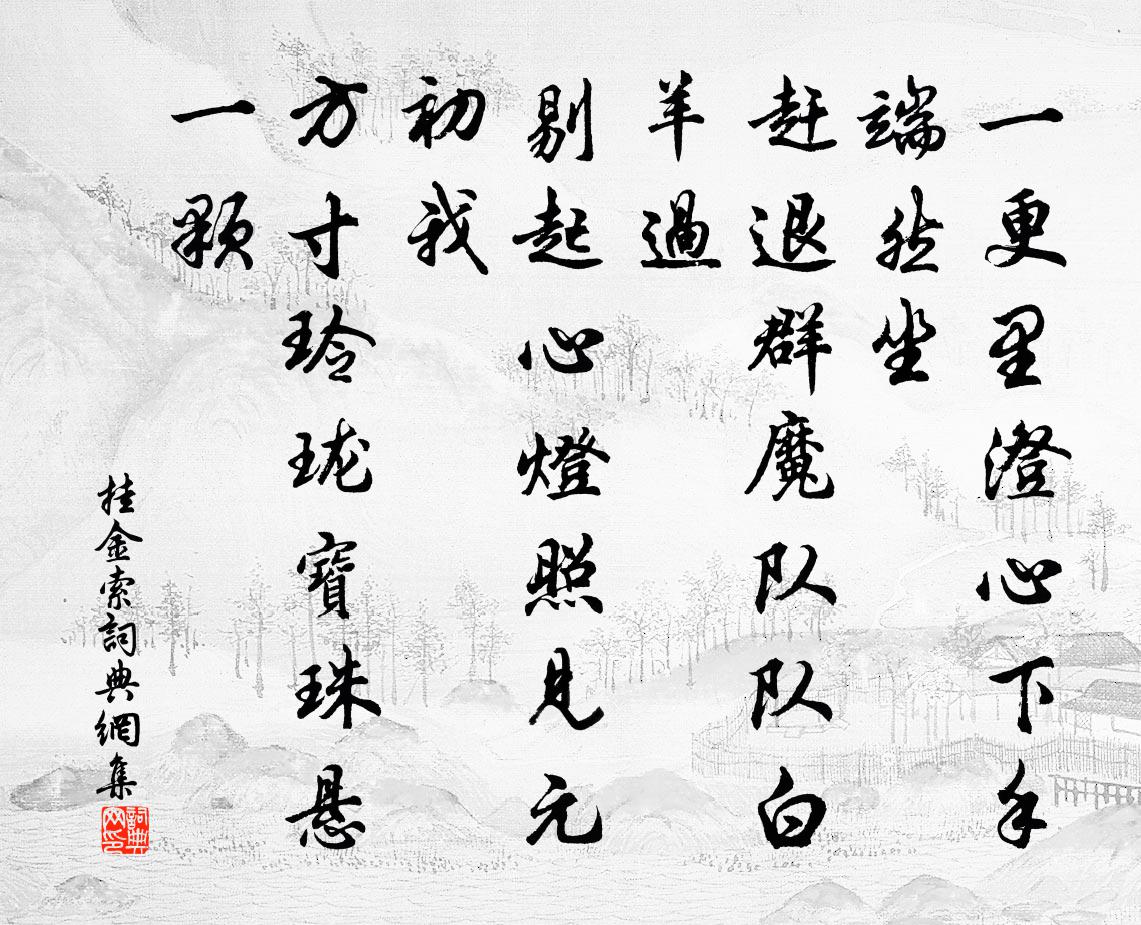 一更里澄心下手
端然坐
赶退群魔队队白
羊過
剔起心燈照見元
初我
方寸玲珑寶珠悬
一顆
挂金索詞典網集
詞典网印